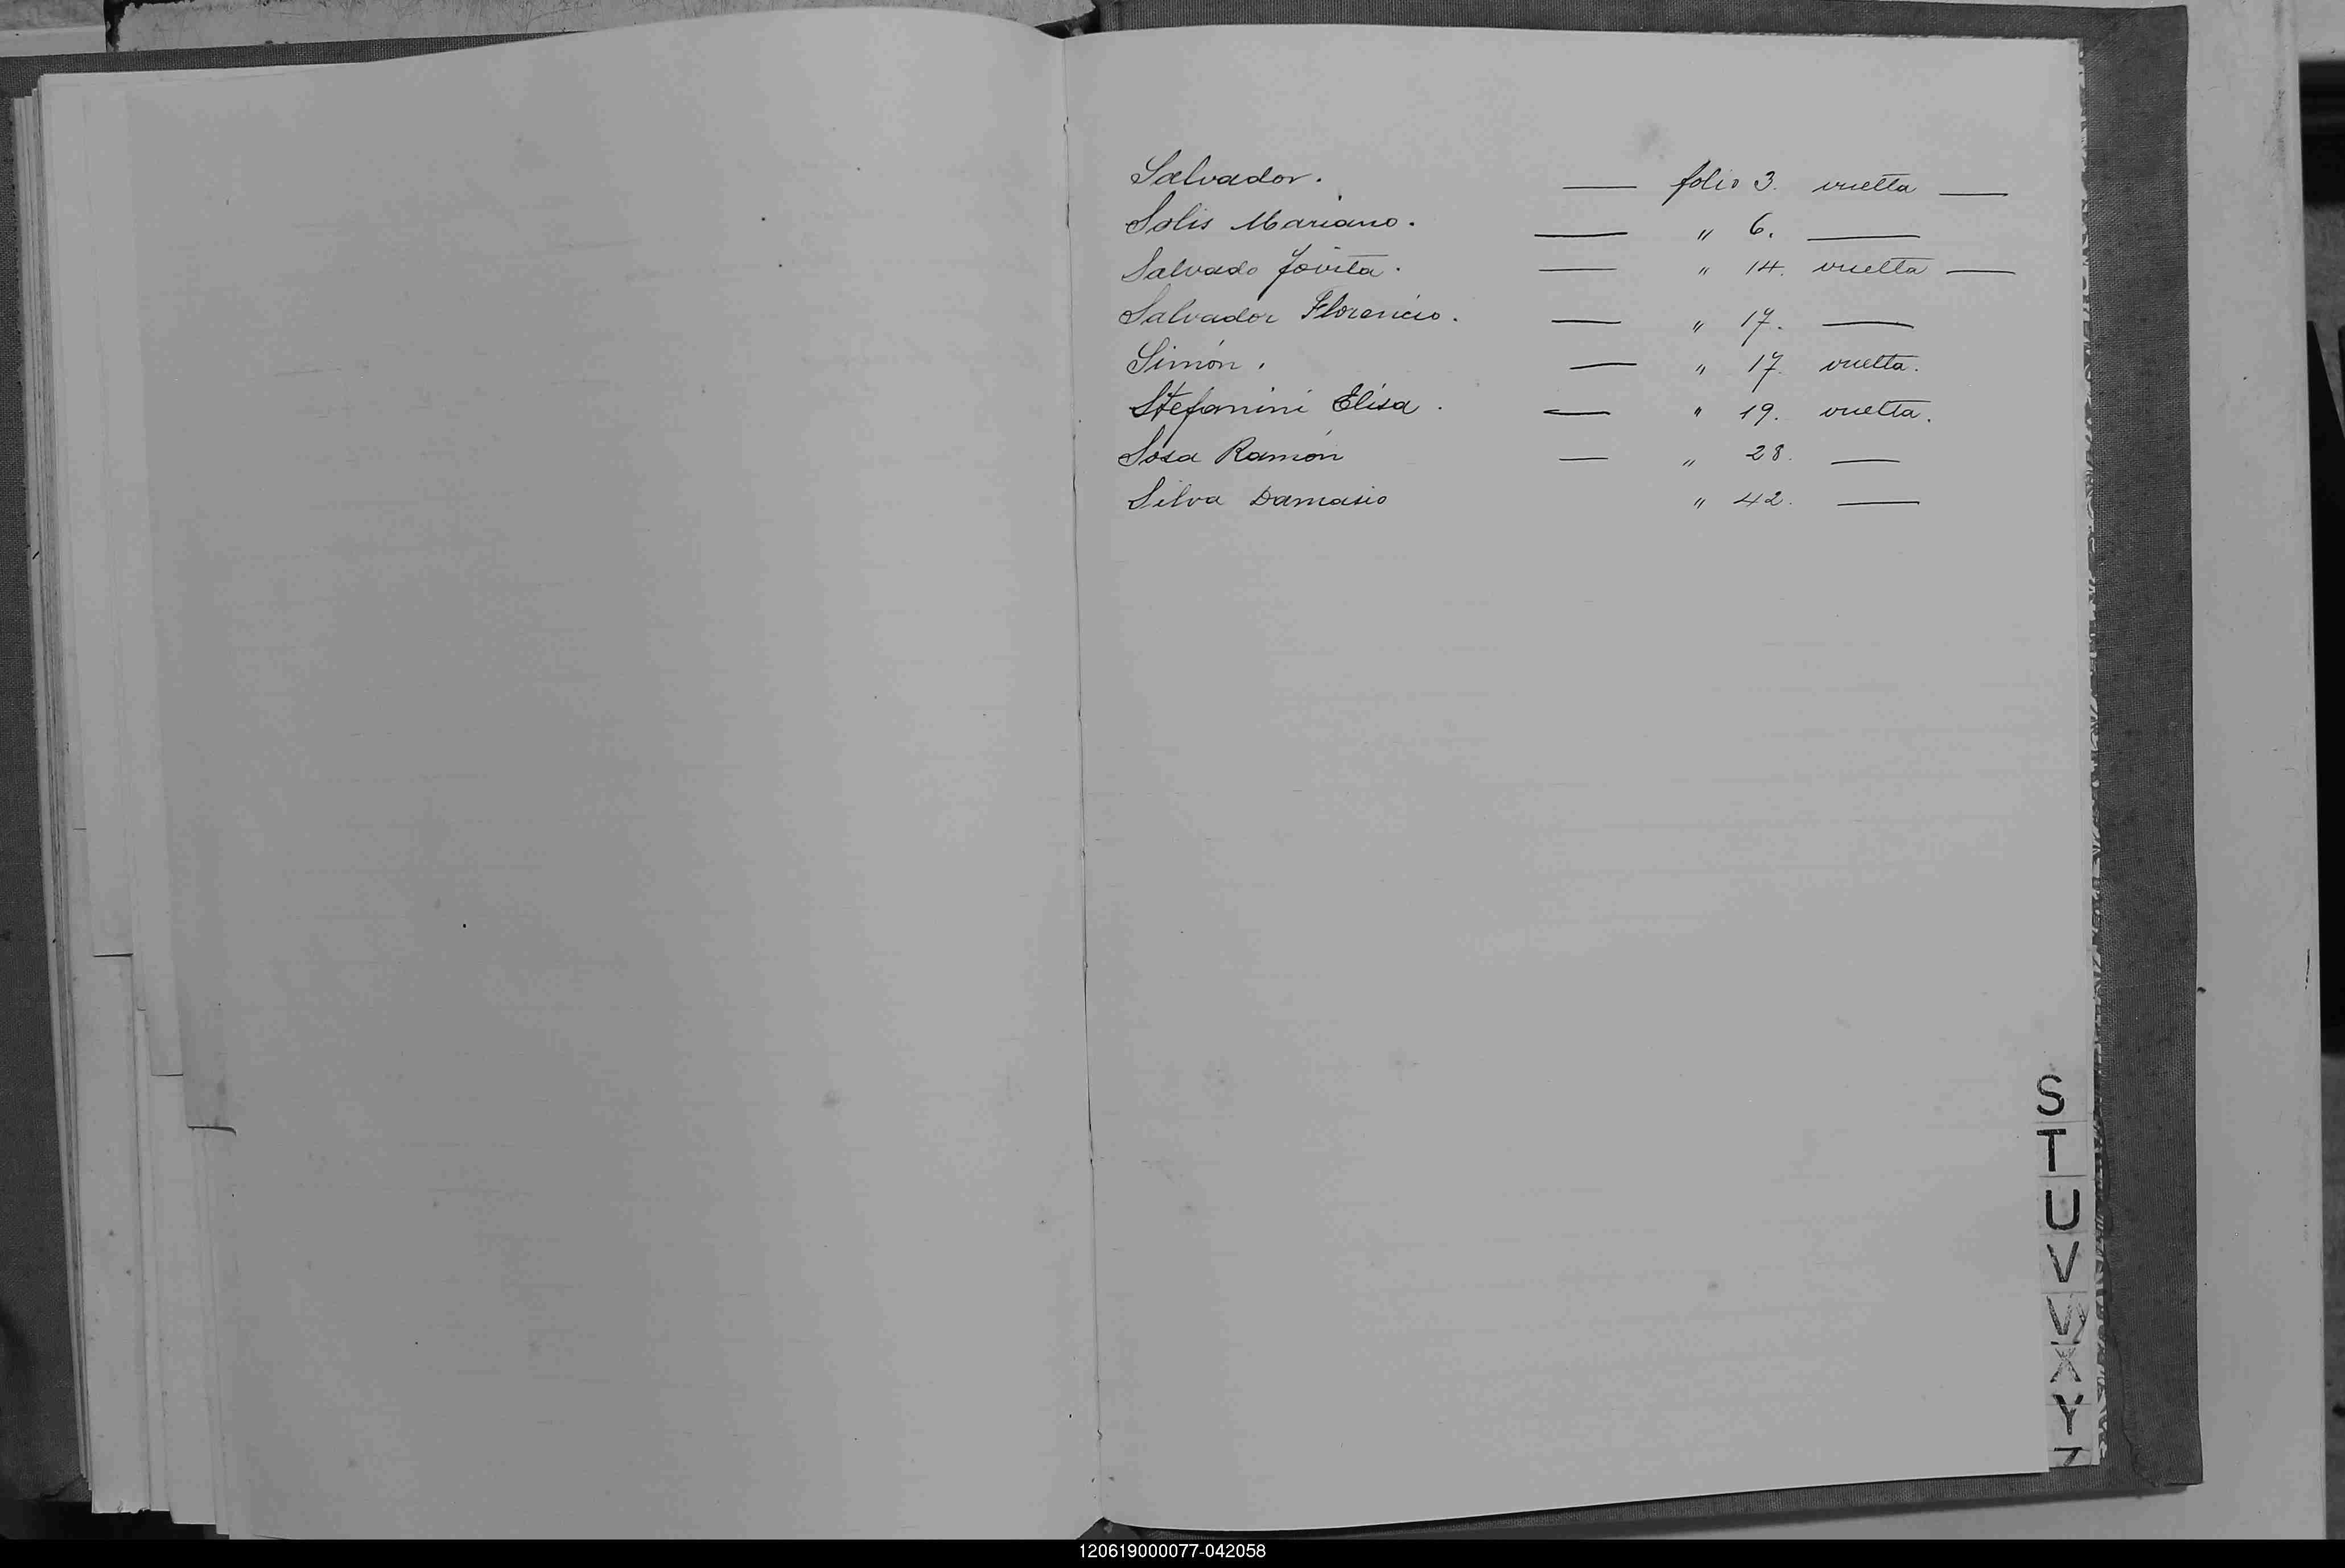 Salvador. — folio 3. vuelta —
Solis Mariano. — " 6. —
Salvado Jovita. — " 14. vuelta —
Salvador Florencio. — " 17. —
Simón. — " 17. vuelta.
Stefanini Elisa. — " 19. vuelta.
Sosa Ramón — " 28. —
Silva Damasio " 42. —
S
T
U
V
W
X
Y
Z
120619000077-042058